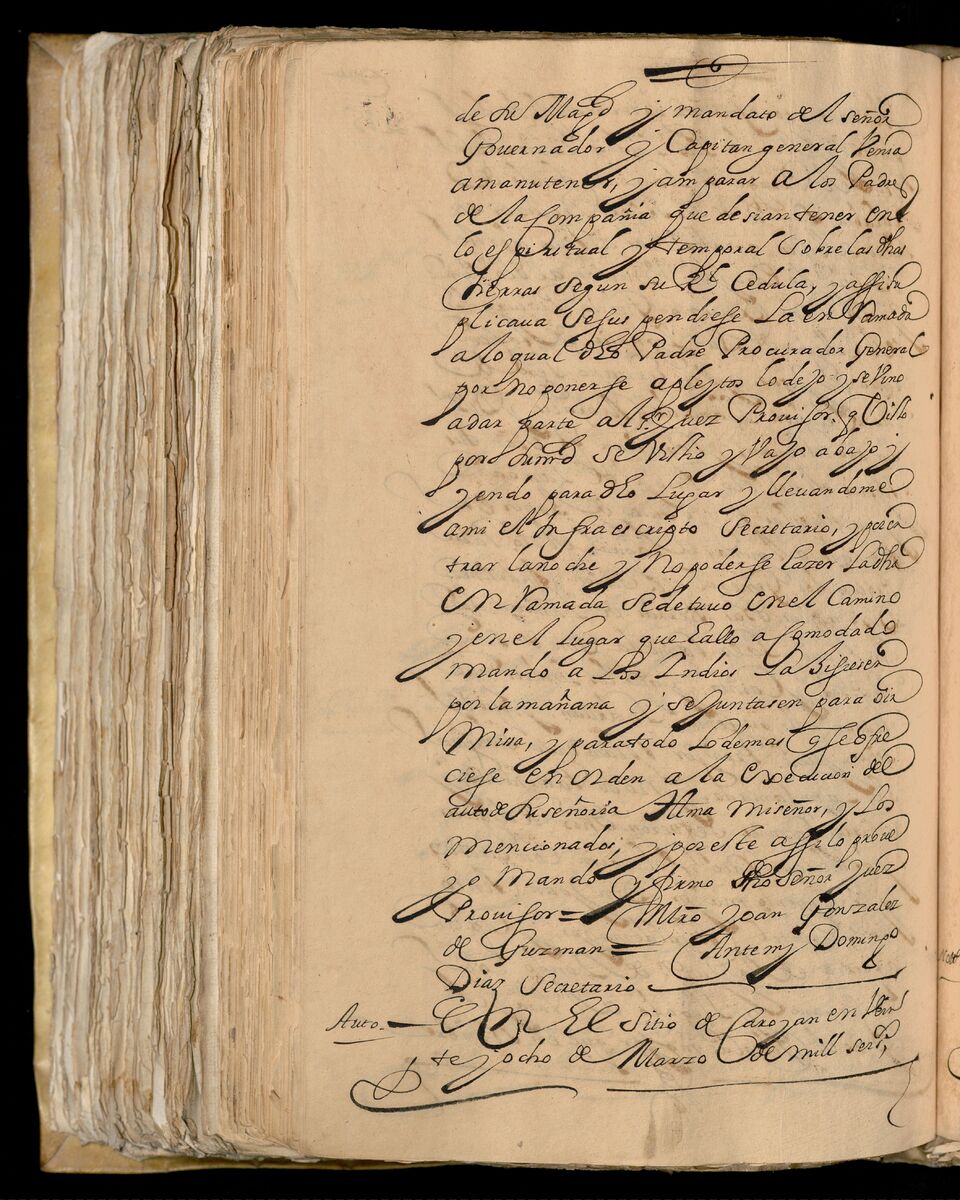 de su Magd y mandato del señor
Governador y Capitan general Venia
amanutener, y amparar a los Padres
de la Compañia que desian tener en
lo espiritual y temporal sobre las dhas
tierras segun su Rl Cedula, y assi su
plicaua sesus pendiese La en Ramada
alo qual dho Padre Procurador General
por no ponerse apleytos lo dejo y se vino
adar parte al sr Juez Prouisor. q Visto
por su md se Vistio y Vajo abajo y
yendo para dho Lugar y lleuandome
ami el Infraescripto Secretario, y por en
trar la noche y No poderse hazer La dha
en Ramada sedetuuo en el Camino
y en el Lugar que hallo acomodado
Mando a Los Indios La hisiesen
por la mañana y se Juntasen para oir
Missa, y para todo Lo demas q se ofre
ciese en orden a la execucion del
auto de su señoria Illma mi señor, y Los
Mencionados, y por este assi lo proue
yo Mandó y firmo dho señor Juez
Prouisor = Mtro Joan Gonzalez
de Guzman = Antemj Domingo
Diaz Secretario
Auto. En El sitio de Caroyan en Vein
te y ocho de Marzo de mill seiss,